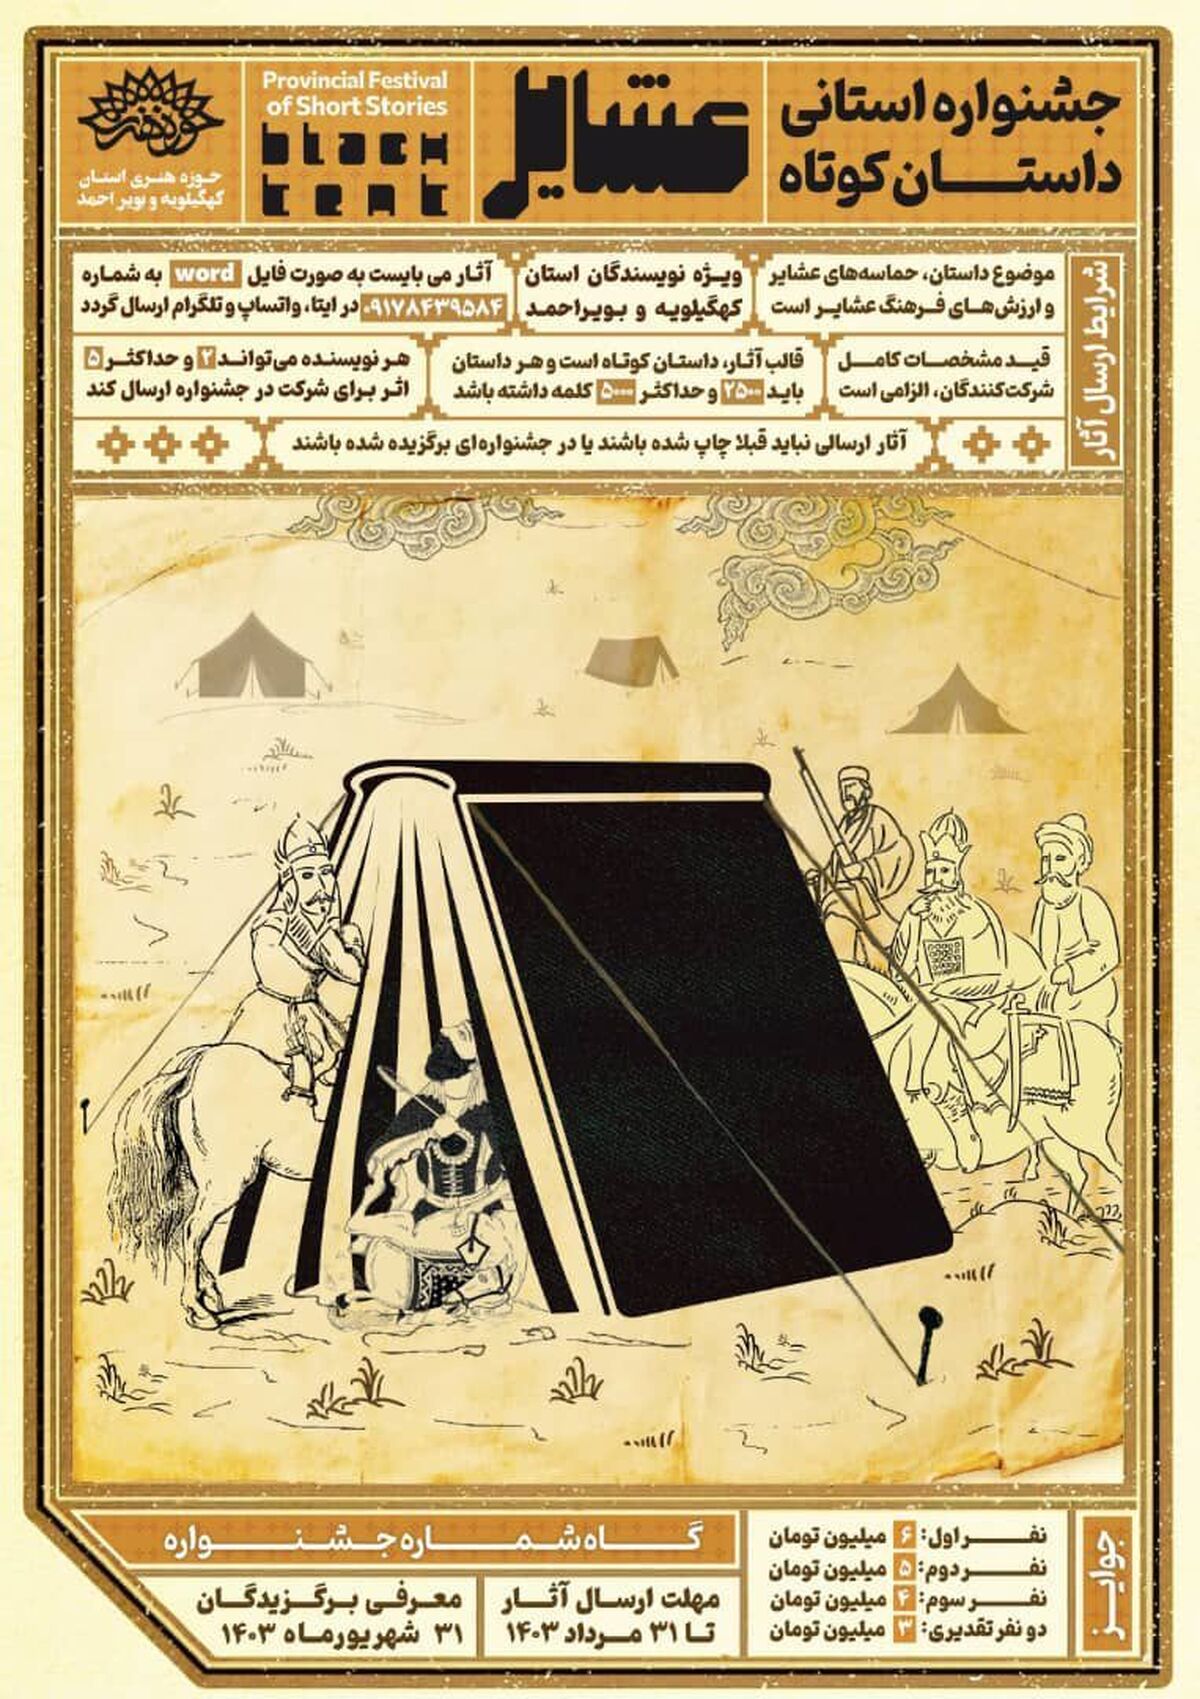 جشنواره استانی
داستان کوتاه
عشایر
Provincial Festival
of Short Stories
black
tent
سوره هنر
حوزه هنری استان
کهگیلویه و بویراحمد
شرایط ارسال آثار
موضوع داستان، حماسه‌های عشایر
و ارزش‌های فرهنگ عشایر است
ویژه نویسندگان استان
کهگیلویه و بویراحمد
آثار می بایست به صورت فایل word به شماره
۰۹۱۷۸۴۳۹۵۸۴ در ایتا، واتساپ و تلگرام ارسال گردد
قید مشخصات کامل
شرکت‌کنندگان، الزامی است
قالب آثار، داستان کوتاه است و هر داستان
باید ۲۵۰۰ و حداکثر ۵۰۰۰ کلمه داشته باشد
هر نویسنده می‌تواند ۲ و حداکثر ۵
اثر برای شرکت در جشنواره ارسال کند
آثار ارسالی نباید قبلا چاپ شده باشند یا در جشنواره‌ای برگزیده شده باشند
جوایز
نفر اول: ۶ میلیون تومان
نفر دوم: ۵ میلیون تومان
نفر سوم: ۴ میلیون تومان
دو نفر تقدیری: ۳ میلیون تومان
گاه شماره جشنواره
مهلت ارسال آثار
تا ۳۱ مرداد ۱۴۰۳
معرفی برگزیدگان
۳۱ شهریورماه ۱۴۰۳